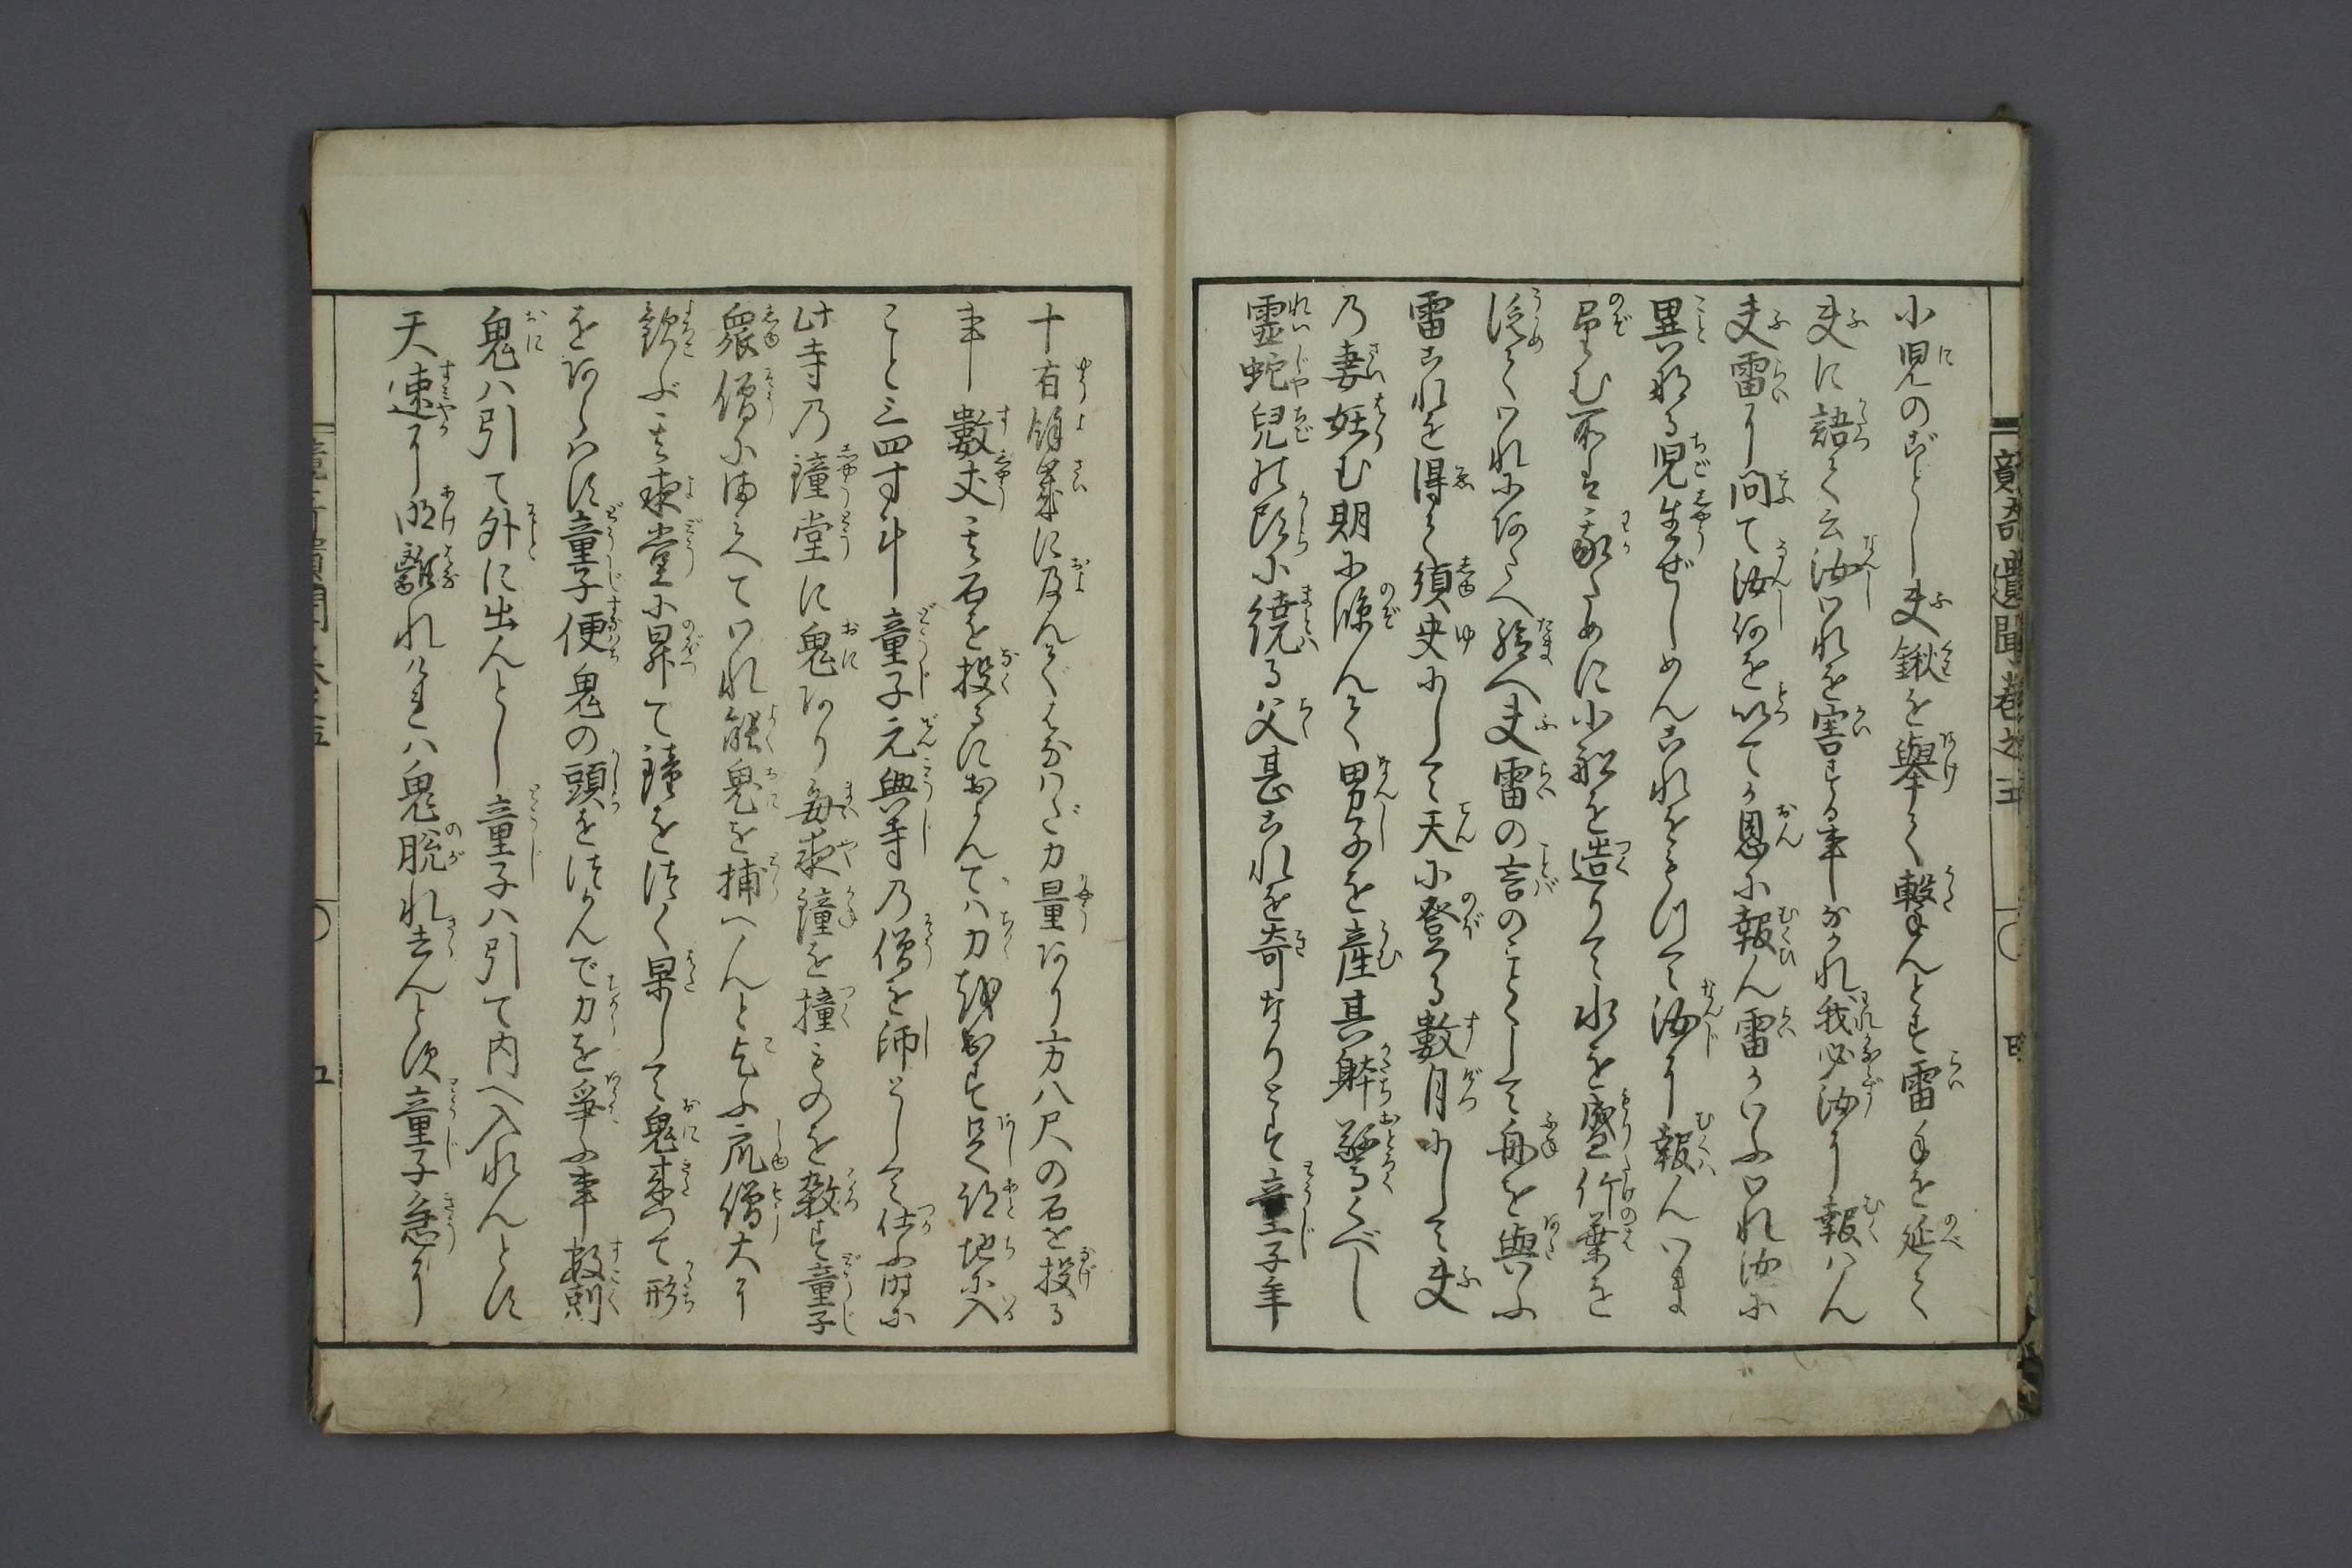 小児のごとし夫鍬を擧て撃んとす雷手を延て
夫に語て云汝われを害する事なかれ我必汝に報はん
夫雷に問て汝何を以てか恩に報ん雷かいふわれ汝に
異なる児生ぜしめんこれをもつて汝に報んいま
望む所は我ために小船を造りて水を盛竹葉を
泛てわれにあたへ給へ夫雷の言のことくして舟を與ふ
雷これを得て須臾にして天に登る數月にして夫
乃妻妊む期に臨んて男子を産其躰驚くべし
靈蛇兒の頭に繞る父甚これを奇なりとす童子年
十有餘歳に及んではなはだ力量あり方八尺の石を投る
事數丈其石を投るにおよんでハ力越出す足跡地に入
こと三四寸斗童子元興寺乃僧を師として仕ふ時に
此寺乃鐘堂に鬼あり毎夜鐘を撞ものを殺す童子
衆僧に向へてわれ能鬼を捕へんと乞ふ衆僧大に
歓ぶ其夜堂に昇て鐘をつく果して鬼来つて形
をあらはす童子便鬼の頭をつかんで力を爭ふ事數刻
鬼ハ引て外に出んとし童子ハ引て内へ入れんとす
天速に明離れけれハ鬼脱れ去んとす童子急に